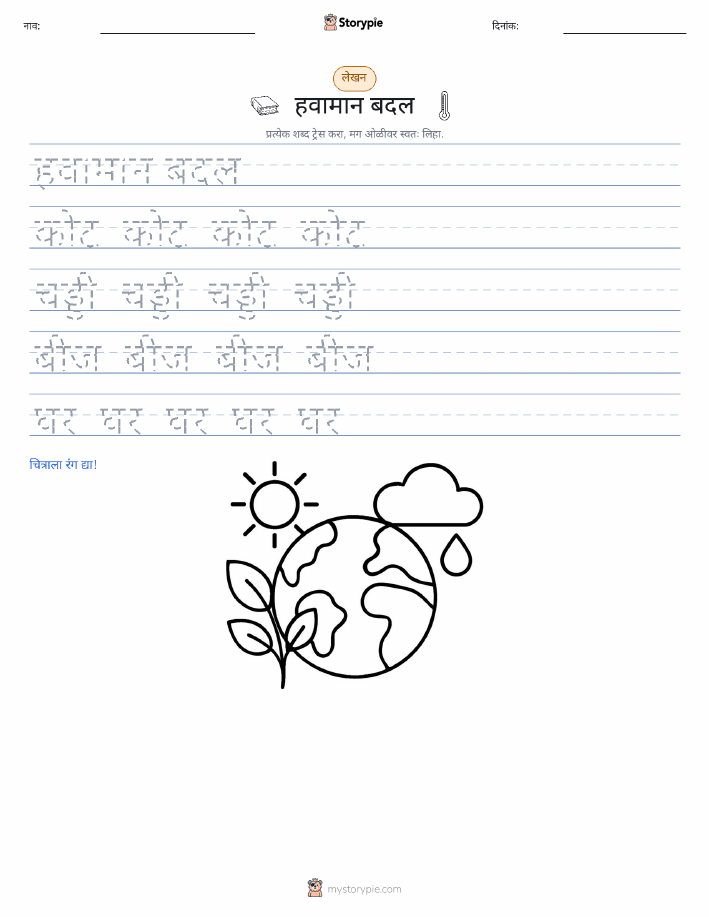 नाव: Storypie दिनांक:
लेखन
हवामान बदल
प्रत्येक शब्द ट्रेस करा, मग ओळीवर स्वतः लिहा.
हवामान बदल
कोट कोट कोट कोट
चड्डी चड्डी चड्डी चड्डी
बीज बीज बीज बीज
घर घर घर घर घर
चित्राला रंग द्या!
mystorypie.com